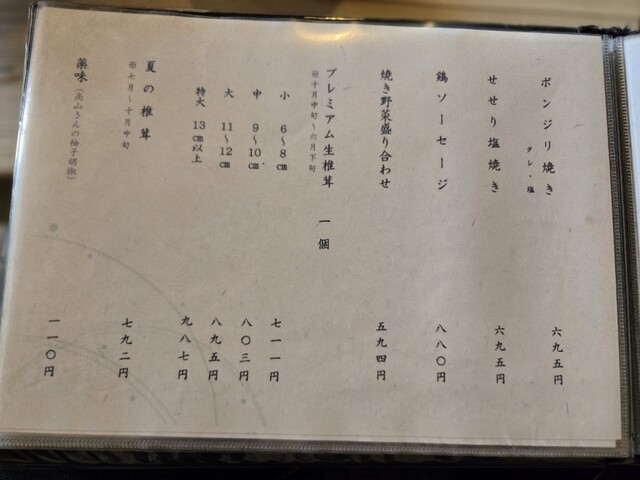 ボンジリ焼き タレ・塩 六九五円
せせり塩焼き 六九五円
鶏ソーセージ 八八〇円
焼き野菜盛り合わせ 五九四円
プレミアム生椎茸 一個
※十月中旬～六月下旬
小 6～8㎝ 七一一円
中 9～10㎝ 八〇三円
大 11～12㎝ 八九五円
特大 13㎝以上 九八七円
夏の椎茸 七九二円
※七月～十月中旬
薬味(高山さんの柚子胡椒) 一一〇円